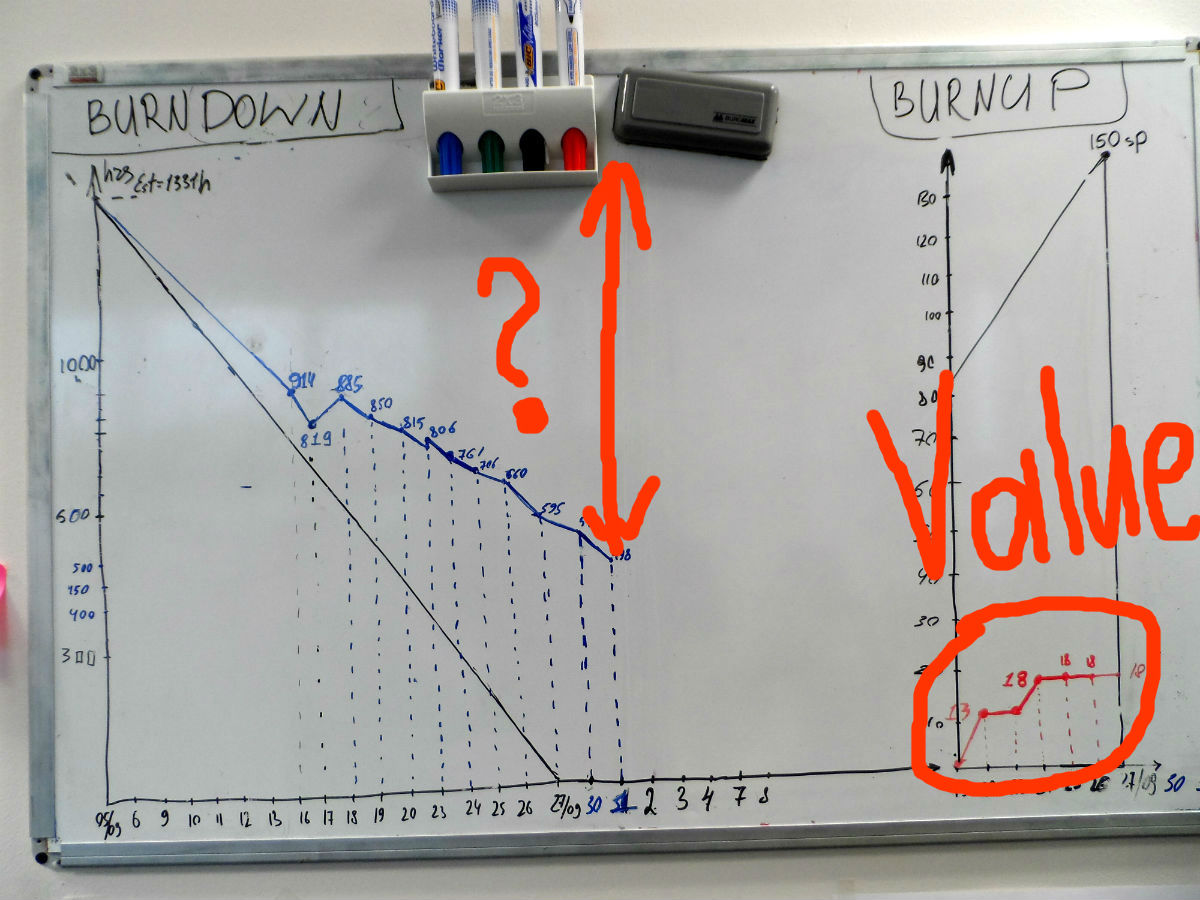 BURNDOWN
BURNUP
Whiteboard
Marker
BIC
BIC
hrs
Est=1331h
1000
600
500
450
400
300
914
819
885
850
815
806
761
706
660
595
?
05/09 6 9 10 11 12 13 16 17 18 19 20 23 24 25 26 27/09 30 2 3 4 7 8
150 sp
130
120
110
100
90
80
70
30
10
Value
13
18
18
18
18
17/09 30